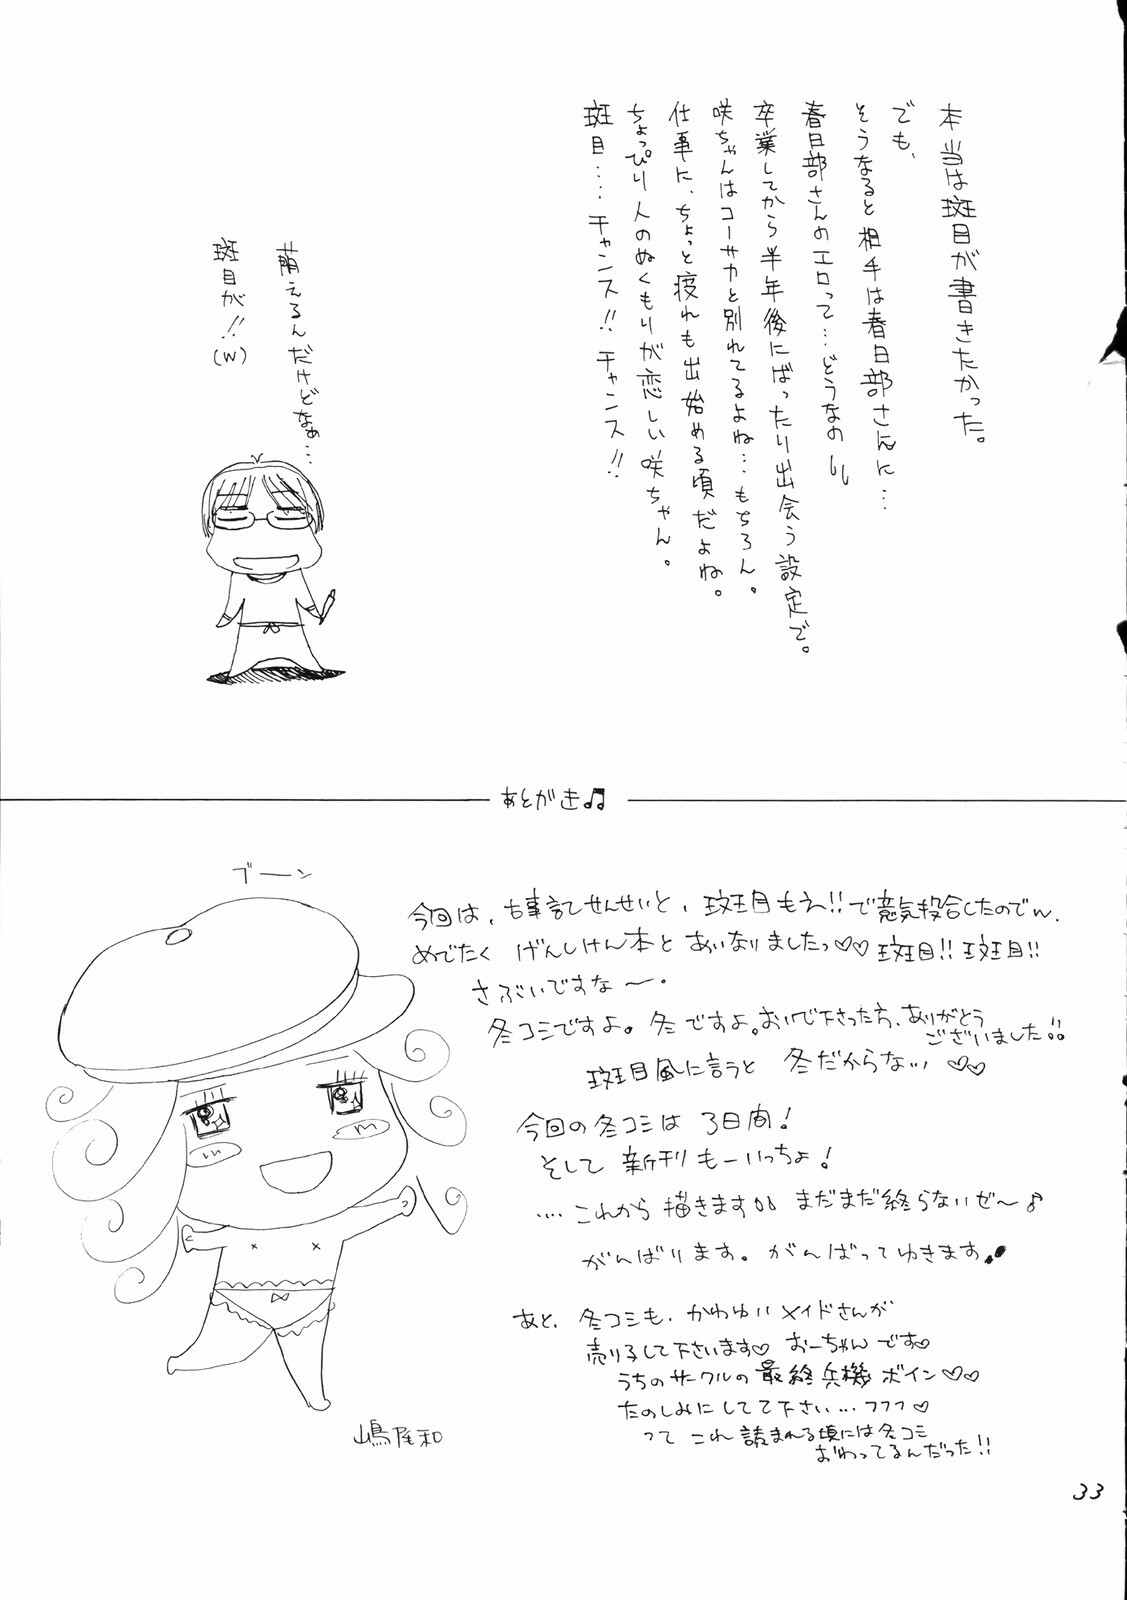 本当は斑目が書きたかった。
でも、
そうなると相手は春日部さんに…
春日部さんのエロって…どうなの
卒業してから半年後にばったり出会う設定で。
咲ちゃんはコーサカと別れてるよね…もちろん。
仕事に、ちょっと疲れも出始める頃だよね。
ちょっぴり人のぬくもりが恋しい咲ちゃん。
斑目…チャンス!!チャンス!!
萠えるんだけどなぁ…
斑目が!!(W)
あとがき♫
ブーン
今回は、古事記せんせいと、斑目もえ!!で意気投合したのでw、
めでたく げんしけん本と あいなりましたっ♡♡ 斑目!! 斑目!!
さぶいですな〜。
冬コミですよ。冬ですよ。おいで下さった方、ありがとう
ございました!!
斑目風に言うと 冬だからな… ♡♡
今回の冬コミは 3日間!
そして 新刊 もーいっちょ!
…これから描きます まだまだ終らないぜ〜♪
がんばります。がんばってゆきます
あと、冬コミも、かわゆいメイドさんが
売り子して下さいます♡ おーちゃんです♡
うちのサークルの最終兵機 ボイン♡♡
たのしみにしてて下さい…フフフ♡
って これ 読まれる頃には冬コミ
おわってるんだった!!
嶋尾和
33